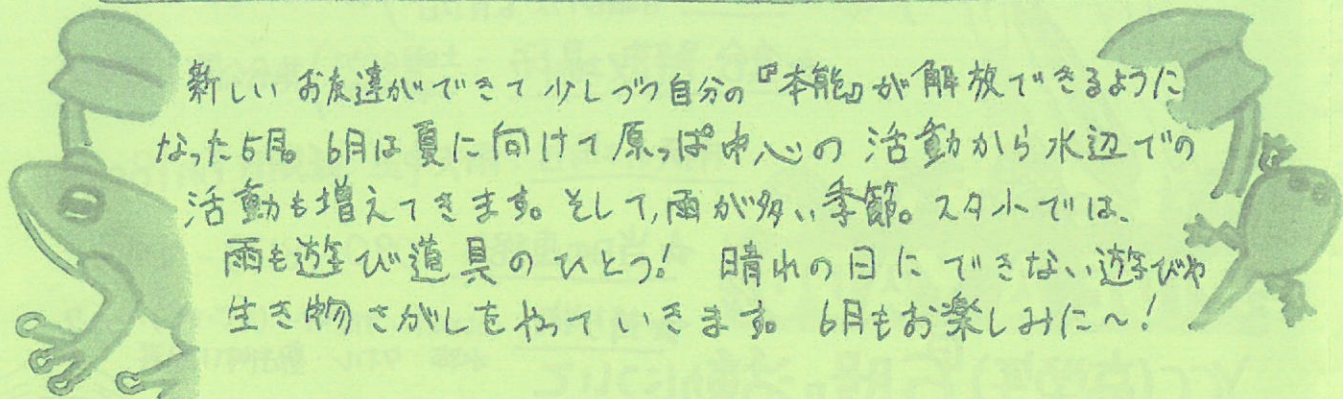 新しいお友達ができて少しづつ自分の『本能』が解放できるように
なった5月。6月は夏に向けて原っぱ中心の活動から水辺での
活動も増えてきます。そして、雨が多い季節。スタ小では、
雨も遊び道具のひとつ! 晴れの日にできない遊びや
生き物さがしをやっていきます。6月もお楽しみに～!